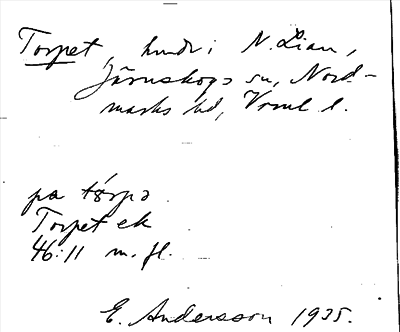 Torpet, hmdr i N. Lian,
Järnskogs sn, Nord-
marks hd, Vrml l.
pa tórpə
Torpet ek
46:11 m. fl.
E. Andersson 1935.